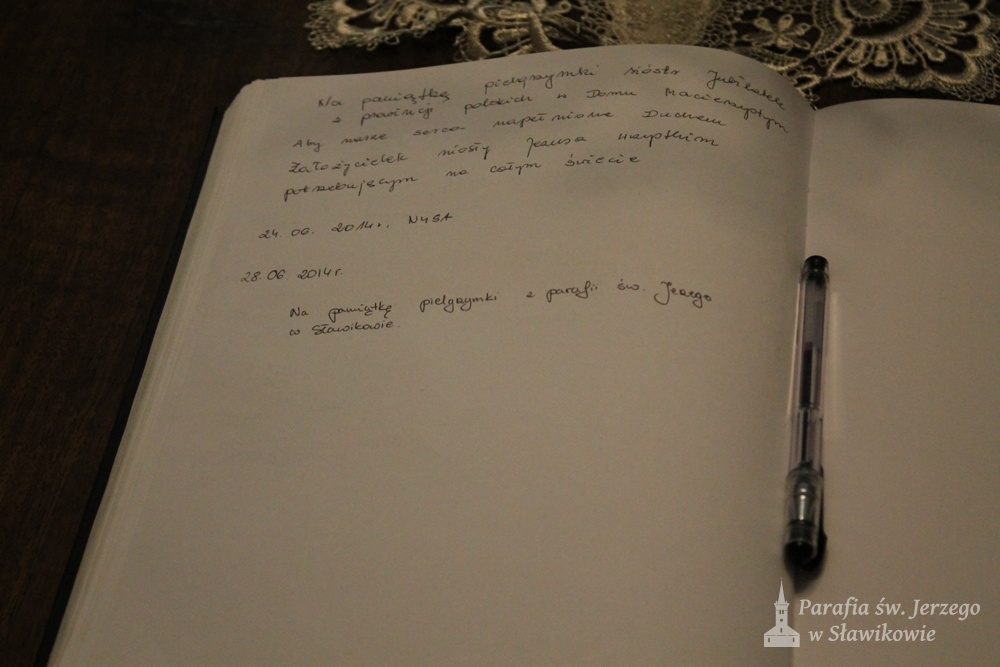 Na pamiątkę pielgrzymki sióstr Jubilatek
z prowincji polskich w Domu Macierzystym
Aby nasze serca napełnione Duchem
Założycielek niosły Jezusa wszystkim
potrzebującym na całym świecie
24. 06. 2014r. NYSA
28. 06. 2014r.
Na pamiątkę pielgrzymki z parafii św. Jerzego
w Sławikowie.
Parafia św. Jerzego
w Sławikowie